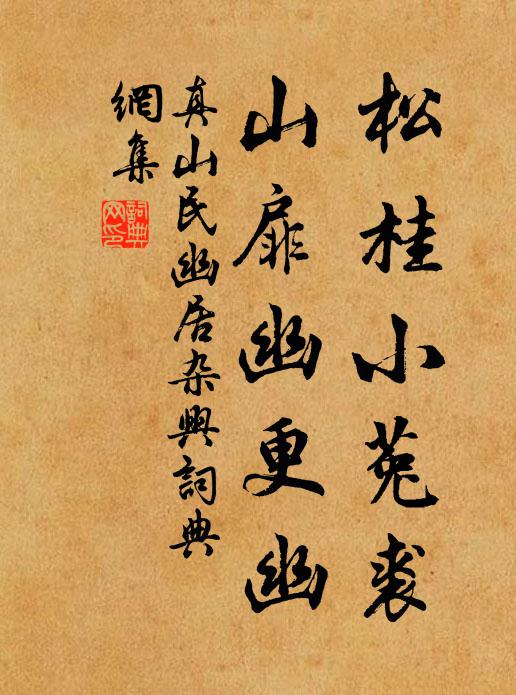 松桂小菟裘
山扉幽更幽
真山民幽居杂興詞典
網集
詞典
网印